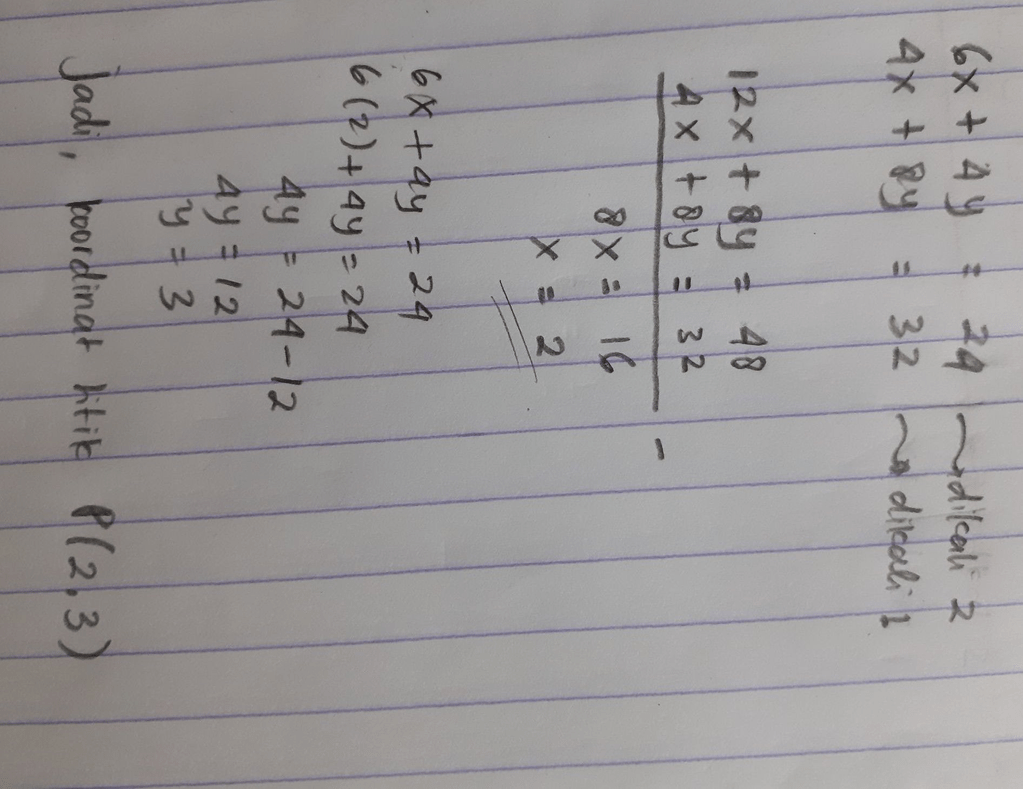 6x + 4y = 24 → dikali 2
4x + 8y = 32 → dikali 1
12x + 8y = 48
4x + 8y = 32 -
8x = 16
x = 2
6x + 4y = 24
6(2) + 4y = 24
4y = 24 - 12
4y = 12
y = 3
Jadi, koordinat titik P(2,3)